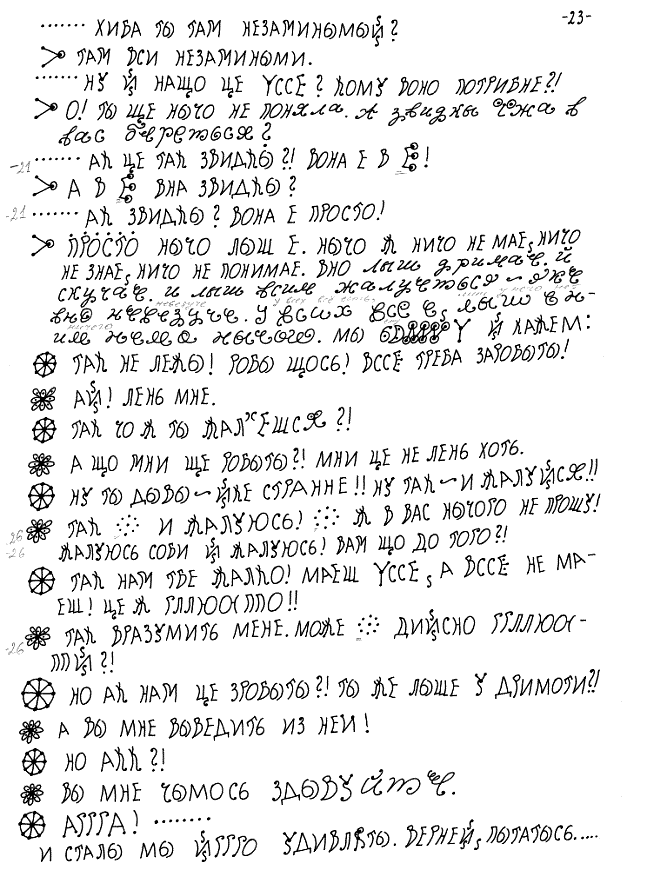 -23-
······· ХИБА ТЫ ТАМ НЕЗАМИНЫМЫЙ?
ТАМ ВСИ НЕЗАМИНЫМИ.
······· НУ Й НАЩО ЦЕ УССЕ? КОМУ ВОНО ПОТРИБНЕ?!
О! ТЫ ЩЕ НЫЧО НЕ ПОНЯЛА. А ЗВИДКЫ ЧЖА В
ВАС БЕРЕТЬСЯ?
-21 ······· АК ЦЕ ТАК ЗВИДКЫ?! ВОНА Е В Е!
А В Е ВНА ЗВИДКЫ?
-21 ······· АК ЗВИДКЫ? ВОНА Е ПРОСТО!
ПРОСТО НЫЧО ЛЫШ Е. НЫЧО Ж НИЧО НЕ МАЕ, НИЧО
НЕ ЗНАЕ, НИЧО НЕ ПОНИМАЕ. ВНО ЛЫШ ДРИМАЕ. Й
СКУЧАЕ. И ЛЫШ ВСИМ ЖАЛУЕТЬСЯ ~ ЯКЕ
ВНО НЕВЕЗУЧЕ. У ВСИХ ВСЕ Е, ЛЫШ В Н-
ИМ НЕМА НЫЧОГО. МЫ У Й КАЖЕМ:
ТАК НЕ ЛЕЖЫ! РОБЫ ЩОСЬ! ВССЕ ТРЕБА ЗАРОБЫТЫ!
АЙ! ЛЕНЬ МНЕ.
ТАК ЧО Ж ТЫ ЖАЛХЕШСЯ?!
А ЩО МНИ ЩЕ РОБЫТЫ?! МНИ ЦЕ НЕ ЛЕНЬ ХОТЬ.
НУ ТЫ ДЫВЫ ~ ЙКЕ СТРАННЕ!! НУ ТАК ~ И ЖАЛУЙСЯ!!
-26 ТАК И ЖАЛУЮСЬ! Ж В ВАС НЫЧОГО НЕ ПРОШУ!
-26 ЖАЛУЮСЬ СОБИ Й ЖАЛУЮСЬ! ВАМ ЩО ДО ТОГО?!
ТАК НАМ ТВЕ ЖАЛКО! МАЕШ УССЕ, А ВССЕ НЕ МА-
ЕШ! ЦЕ Ж ГЛЛЮОСППО!!
-26 ТАК ВРАЗУМИТЬ МЕНЕ. МОЖЕ ДИЙСНО ГГЛЛЮОС-
ППЙ?!
НО АК НАМ ЦЕ ЗРОБЫТЫ?! ТЫ ЖЕ ЛЫШЕ У ДРИМОТИ?!
А ВЫ МНЕ ВЫВЕДИТЬ ИЗ НЕИ!
НО АКК?!
ВЫ МНЕ ЧЫМОСЬ ЗДЫВУЙТЕ.
АГГГА! ········
И СТАЛЫ МЫ ЙГГГО УДИВЛЯТЫ. ВЕРНЕЙ, ПЫТАТЫСЬ.....